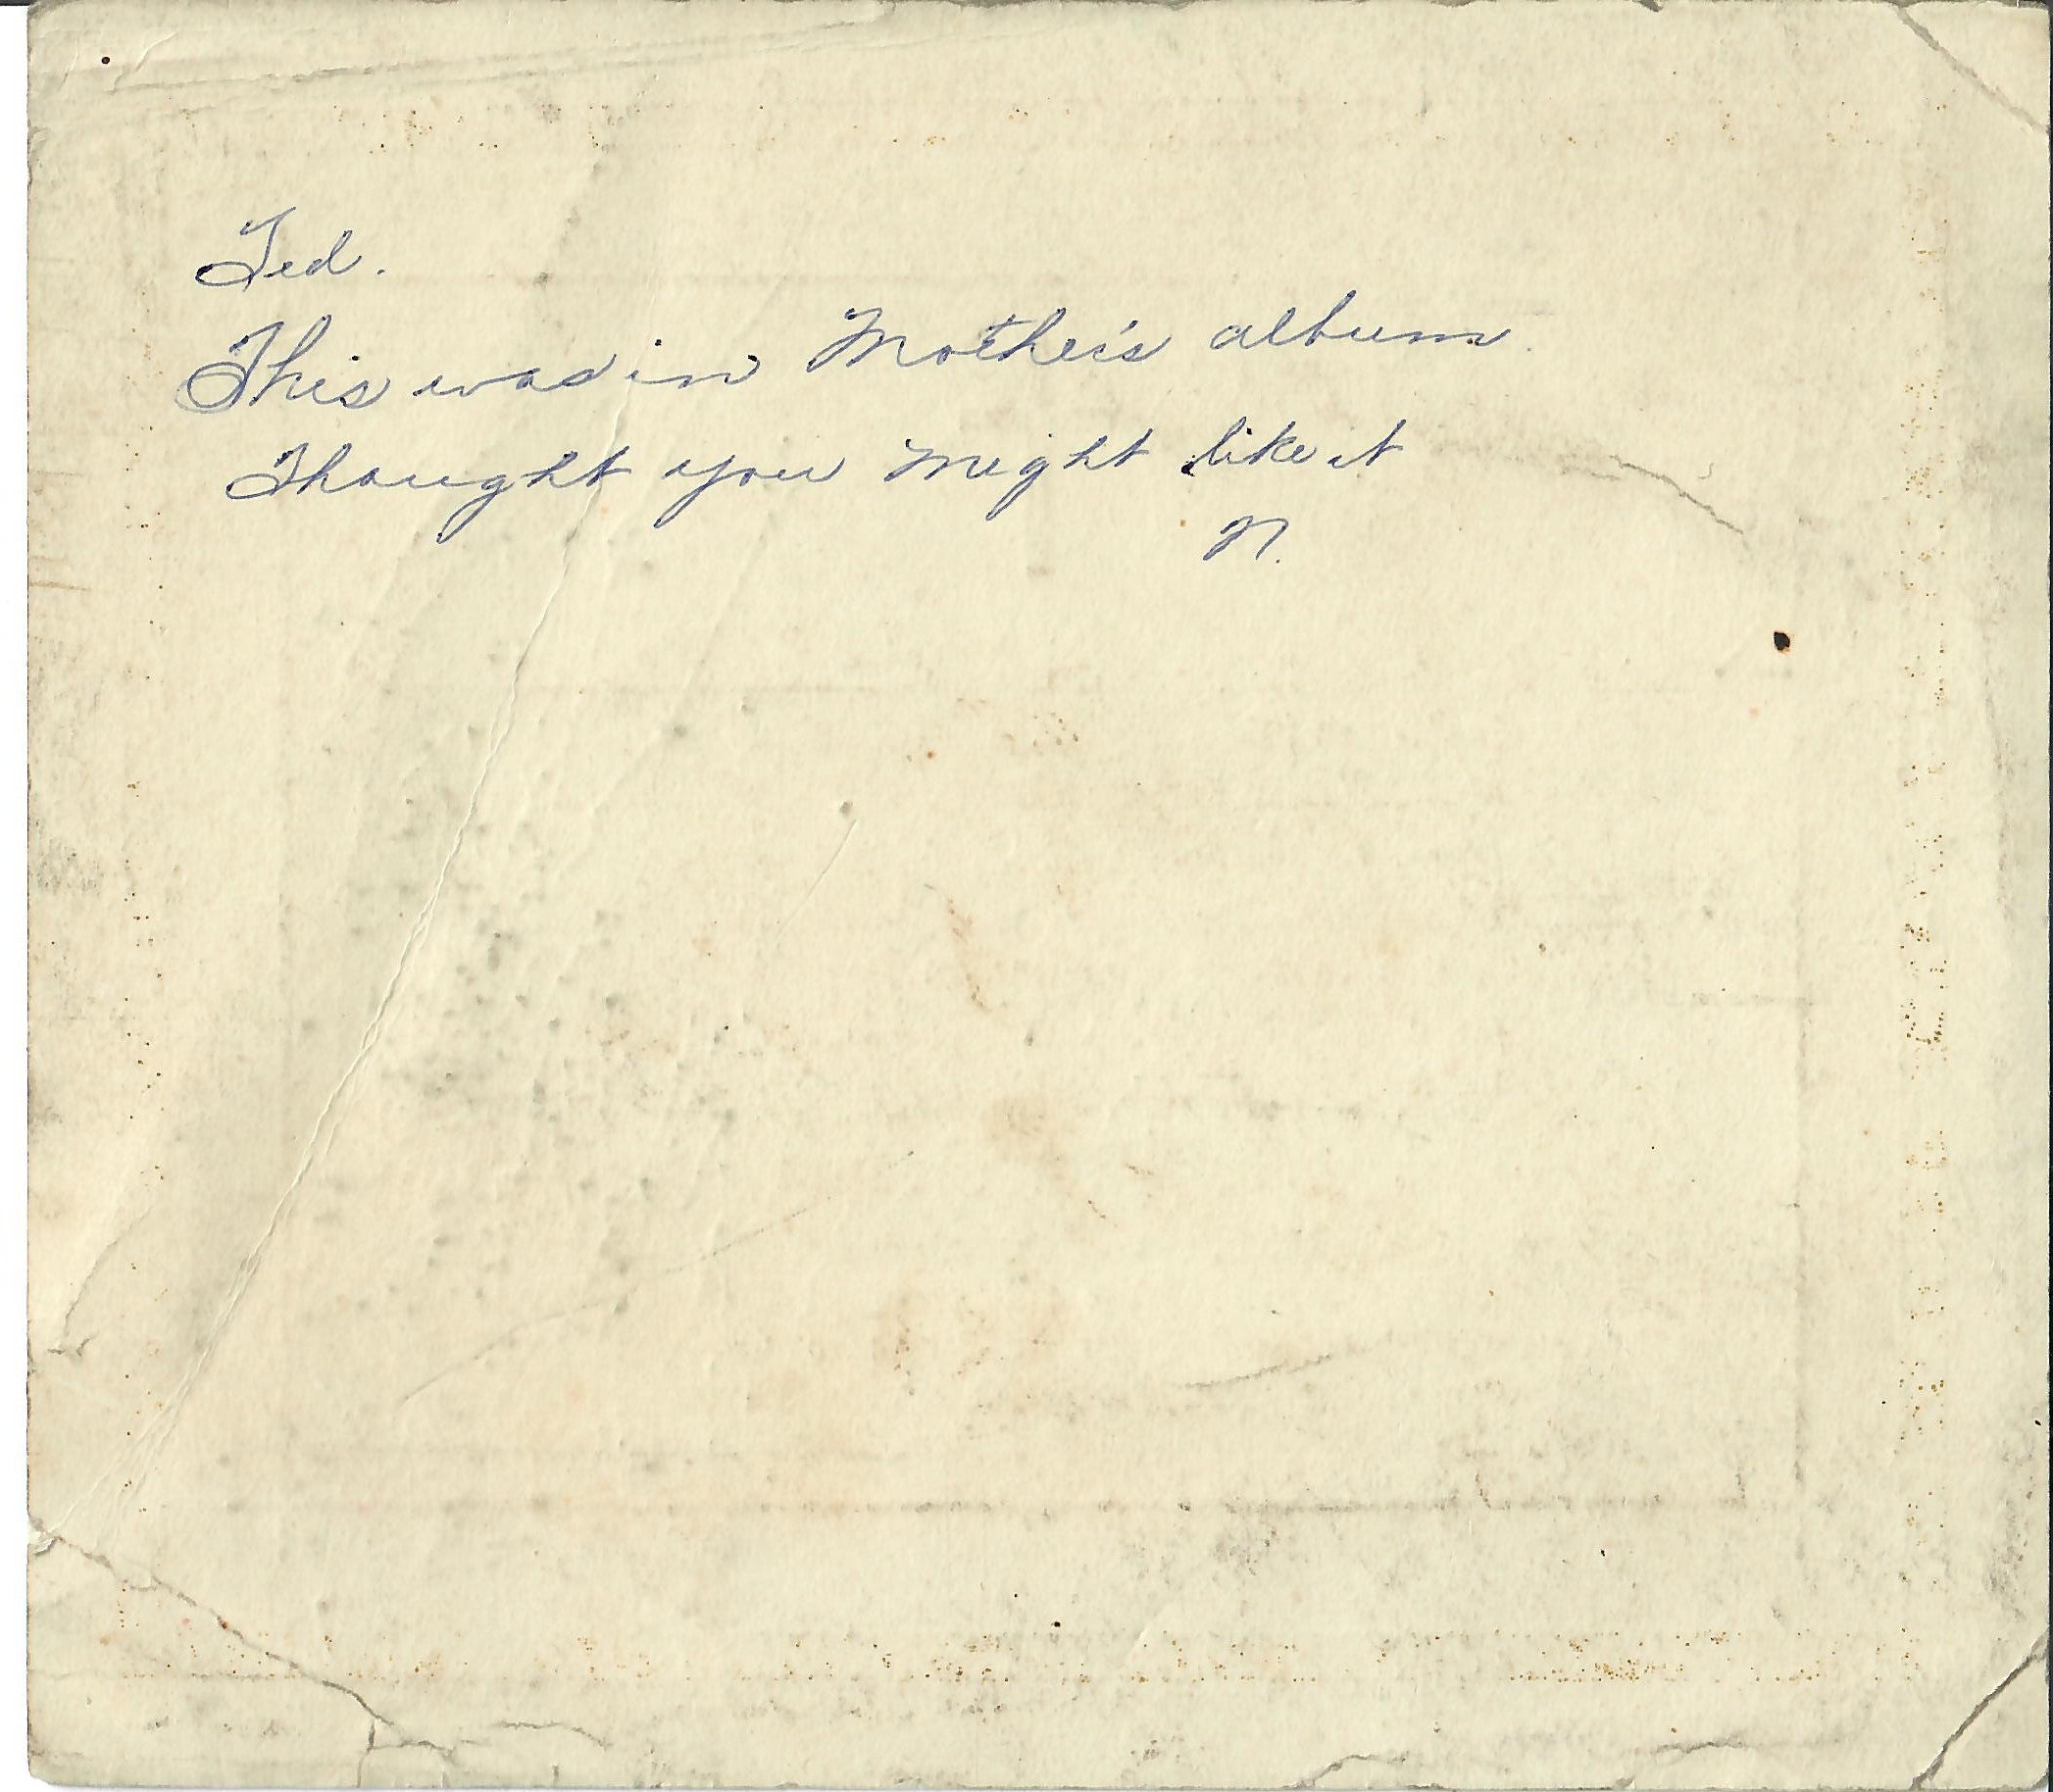 Ted.
This was in Mother's album.
Thought you might like it
N.